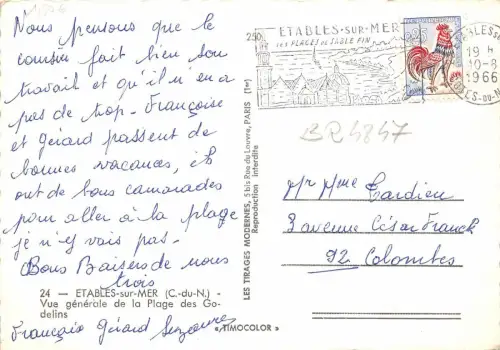 Nous pensons que le
cousin fait bien son
travail et qu'il n'en a
pas de trop. Françoise
et Gérard passent de
bonnes vacances, ils
ont de bons camarades
pour aller à la plage
je n'y vais pas.
Bons Baisers de nous
trois
24 — ETABLES-sur-MER (C.-du-N.) -
Vue générale de la Plage des Go-
delins
Françoise Gérard Suzanne
« TIMOCOLOR »
LES TIRAGES MODERNES, 5 bis Rue du Louvre, PARIS (1er)
Reproduction interdite
250
ETABLES-SUR-MER
SES PLAGES DE SABLE FIN
0,25
19 H
10-8
1966
BR4847
Mr Mme Tardieu
3 avenue César Franck
92 Colombes